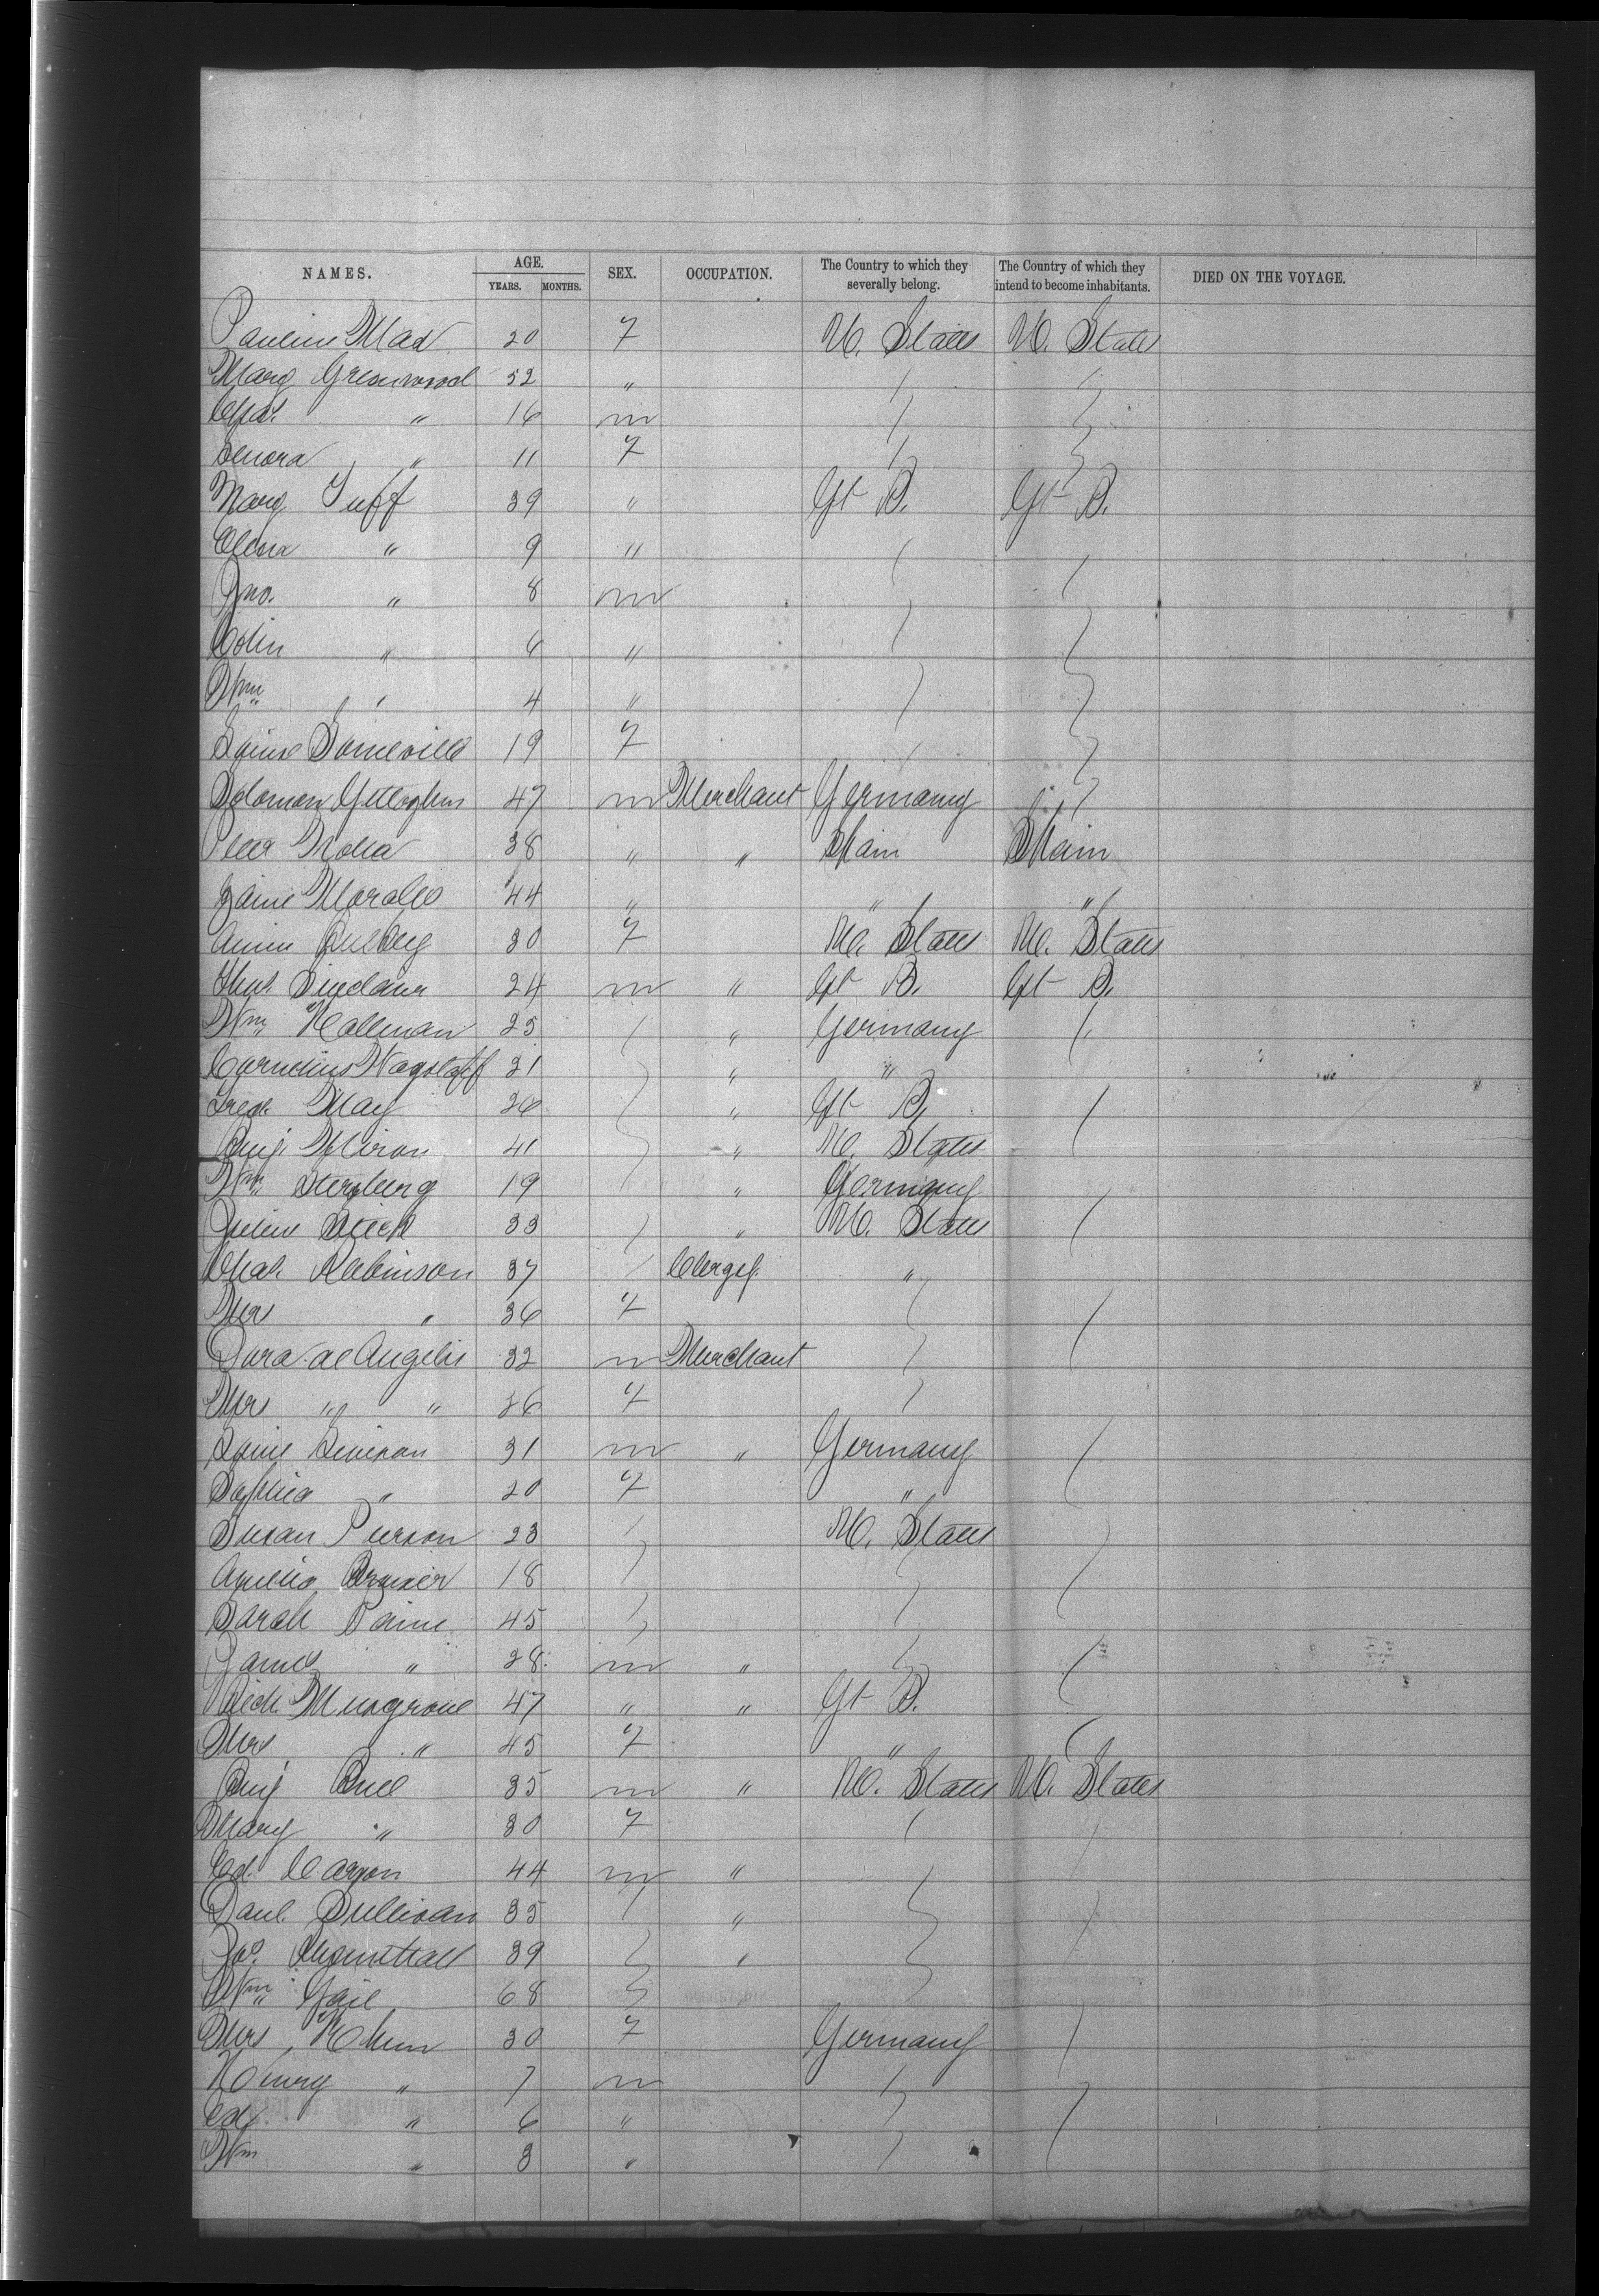 NAMES. AGE. SEX. OCCUPATION. The Country to which they severally belong. The Country of which they intend to become inhabitants. DIED ON THE VOYAGE.
YEARS. MONTHS.
Pauline Mad 20 F U. States U. States
Marg Greenwood 52 "
Chas. " 16 m
Lenora " 11 F
Marg Tuff 39 " Gt B. Gt B.
Elena " 9 "
Jno. " 8 m
Colin " 6 "
Wm " 4 "
Louise Someville 19 F
Solomon 47 m Merchant Germany
Peter 38 " " Spain Spain
Jaime Morales 44 " " "
Annie 30 F U. States U. States
Thos. Sinclair 24 m " Gt B. Gt B.
Wm Hallman 25 " Germany
Cornelius Wagstaff 21 " "
Fred. May 26 " Gt B.
Benj. 41 " U. States
Wm Sternberg 19 " Germany
Julius 33 " U. States
Chas. Robinson 37 Clergy. "
Mrs " 36 F
de Angelis 32 m Merchant
Mrs " " 26 F
Louis Levison 31 m " Germany
Sophia " 20 F "
Susan Pierson 23 U. States
Amelia 18
Sarah Paine 45
James " 28 m "
Rich. Musgrove 47 " " Gt B.
Mrs " 45 F "
Benj Buel 35 m " U. States U. States
Mary " 30 F
Ed. Carson 44 m "
Danl. Sullivan 35 "
Jos. 39 "
Wm Gail 68
Mrs 30 F Germany
Henry " 7 m
Ed. " 6 "
Wm " 3 "